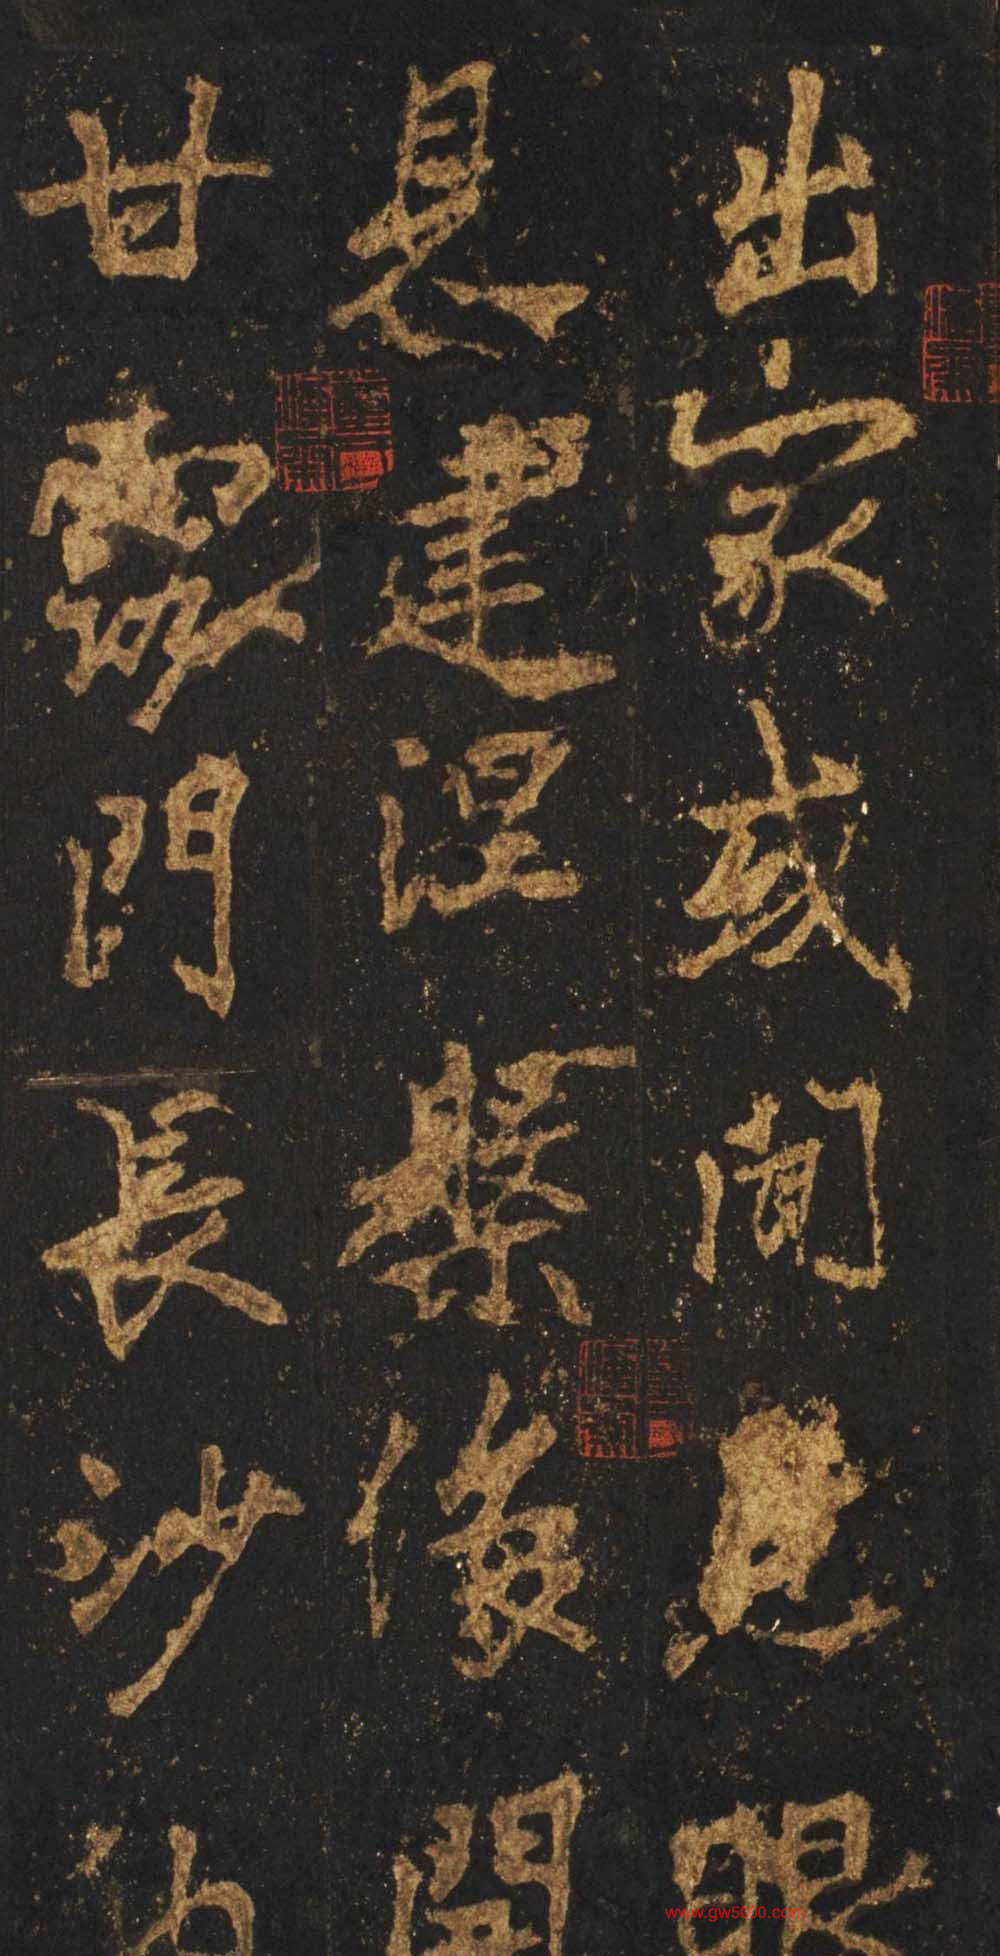 出家或聞見眼
見建涅槃像開
甘露門長沙內
www.gw5000.com